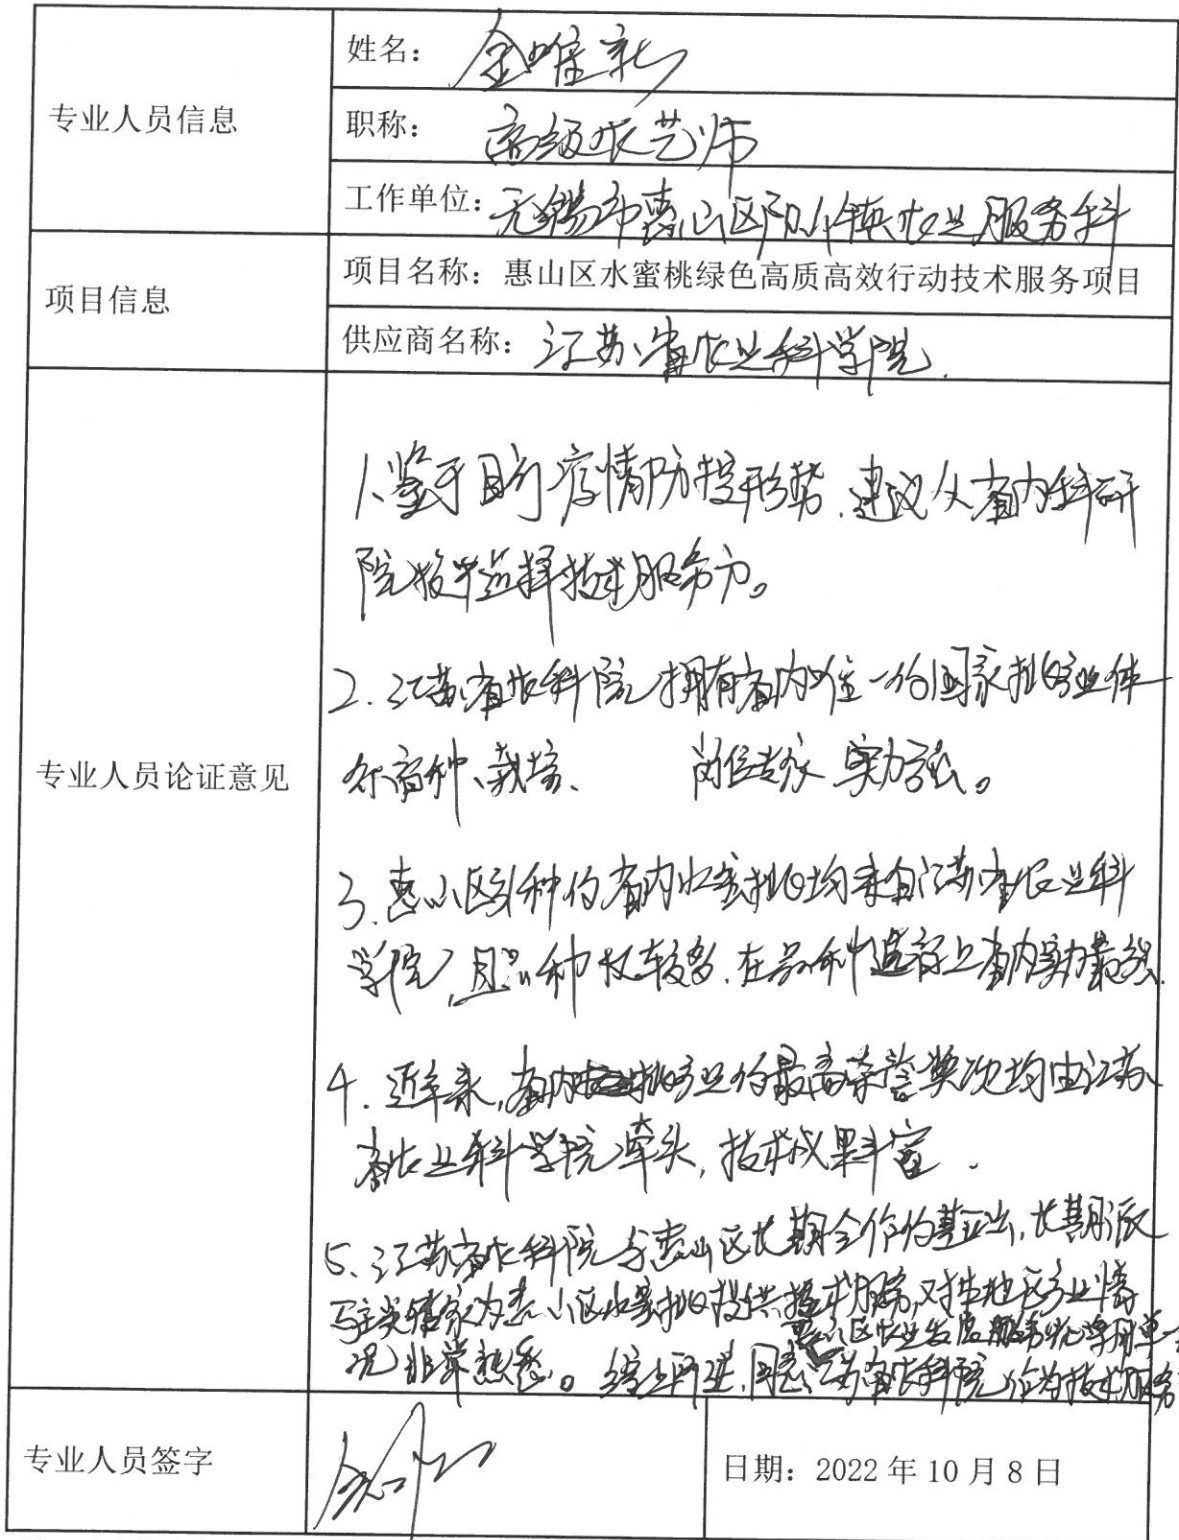 专业人员信息
姓名：金唯新
职称：高级农艺师
工作单位：无锡市惠山区阳山镇农业服务科
项目信息
项目名称：惠山区水蜜桃绿色高质高效行动技术服务项目
供应商名称：江苏省农业科学院.
专业人员论证意见
1.鉴于目前疫情防控形势，建议从省内科研
院校中选择技术服务方。
2.江苏省农科院拥有省内唯一的国家桃产业体
系育种、栽培、 岗位专家 实力强。
3.惠山区引种的省内水蜜桃均来自江苏省农业科
学院，且品种较多，在品种选育上省内实力最强.
4.近年来，省内桃产业的最高荣誉奖项均由江苏
省农业科学院牵头，技术成果丰富.
5.江苏省农科院与惠山区长期合作的基础，长期派
专家为惠山区水蜜桃提供技术服务，对本地区产业情
惠山区农业发展服务中心采用单一
况非常熟悉。综上所述，同意江苏省农科院作为技术服务
专业人员签字
日期：2022年10月8日